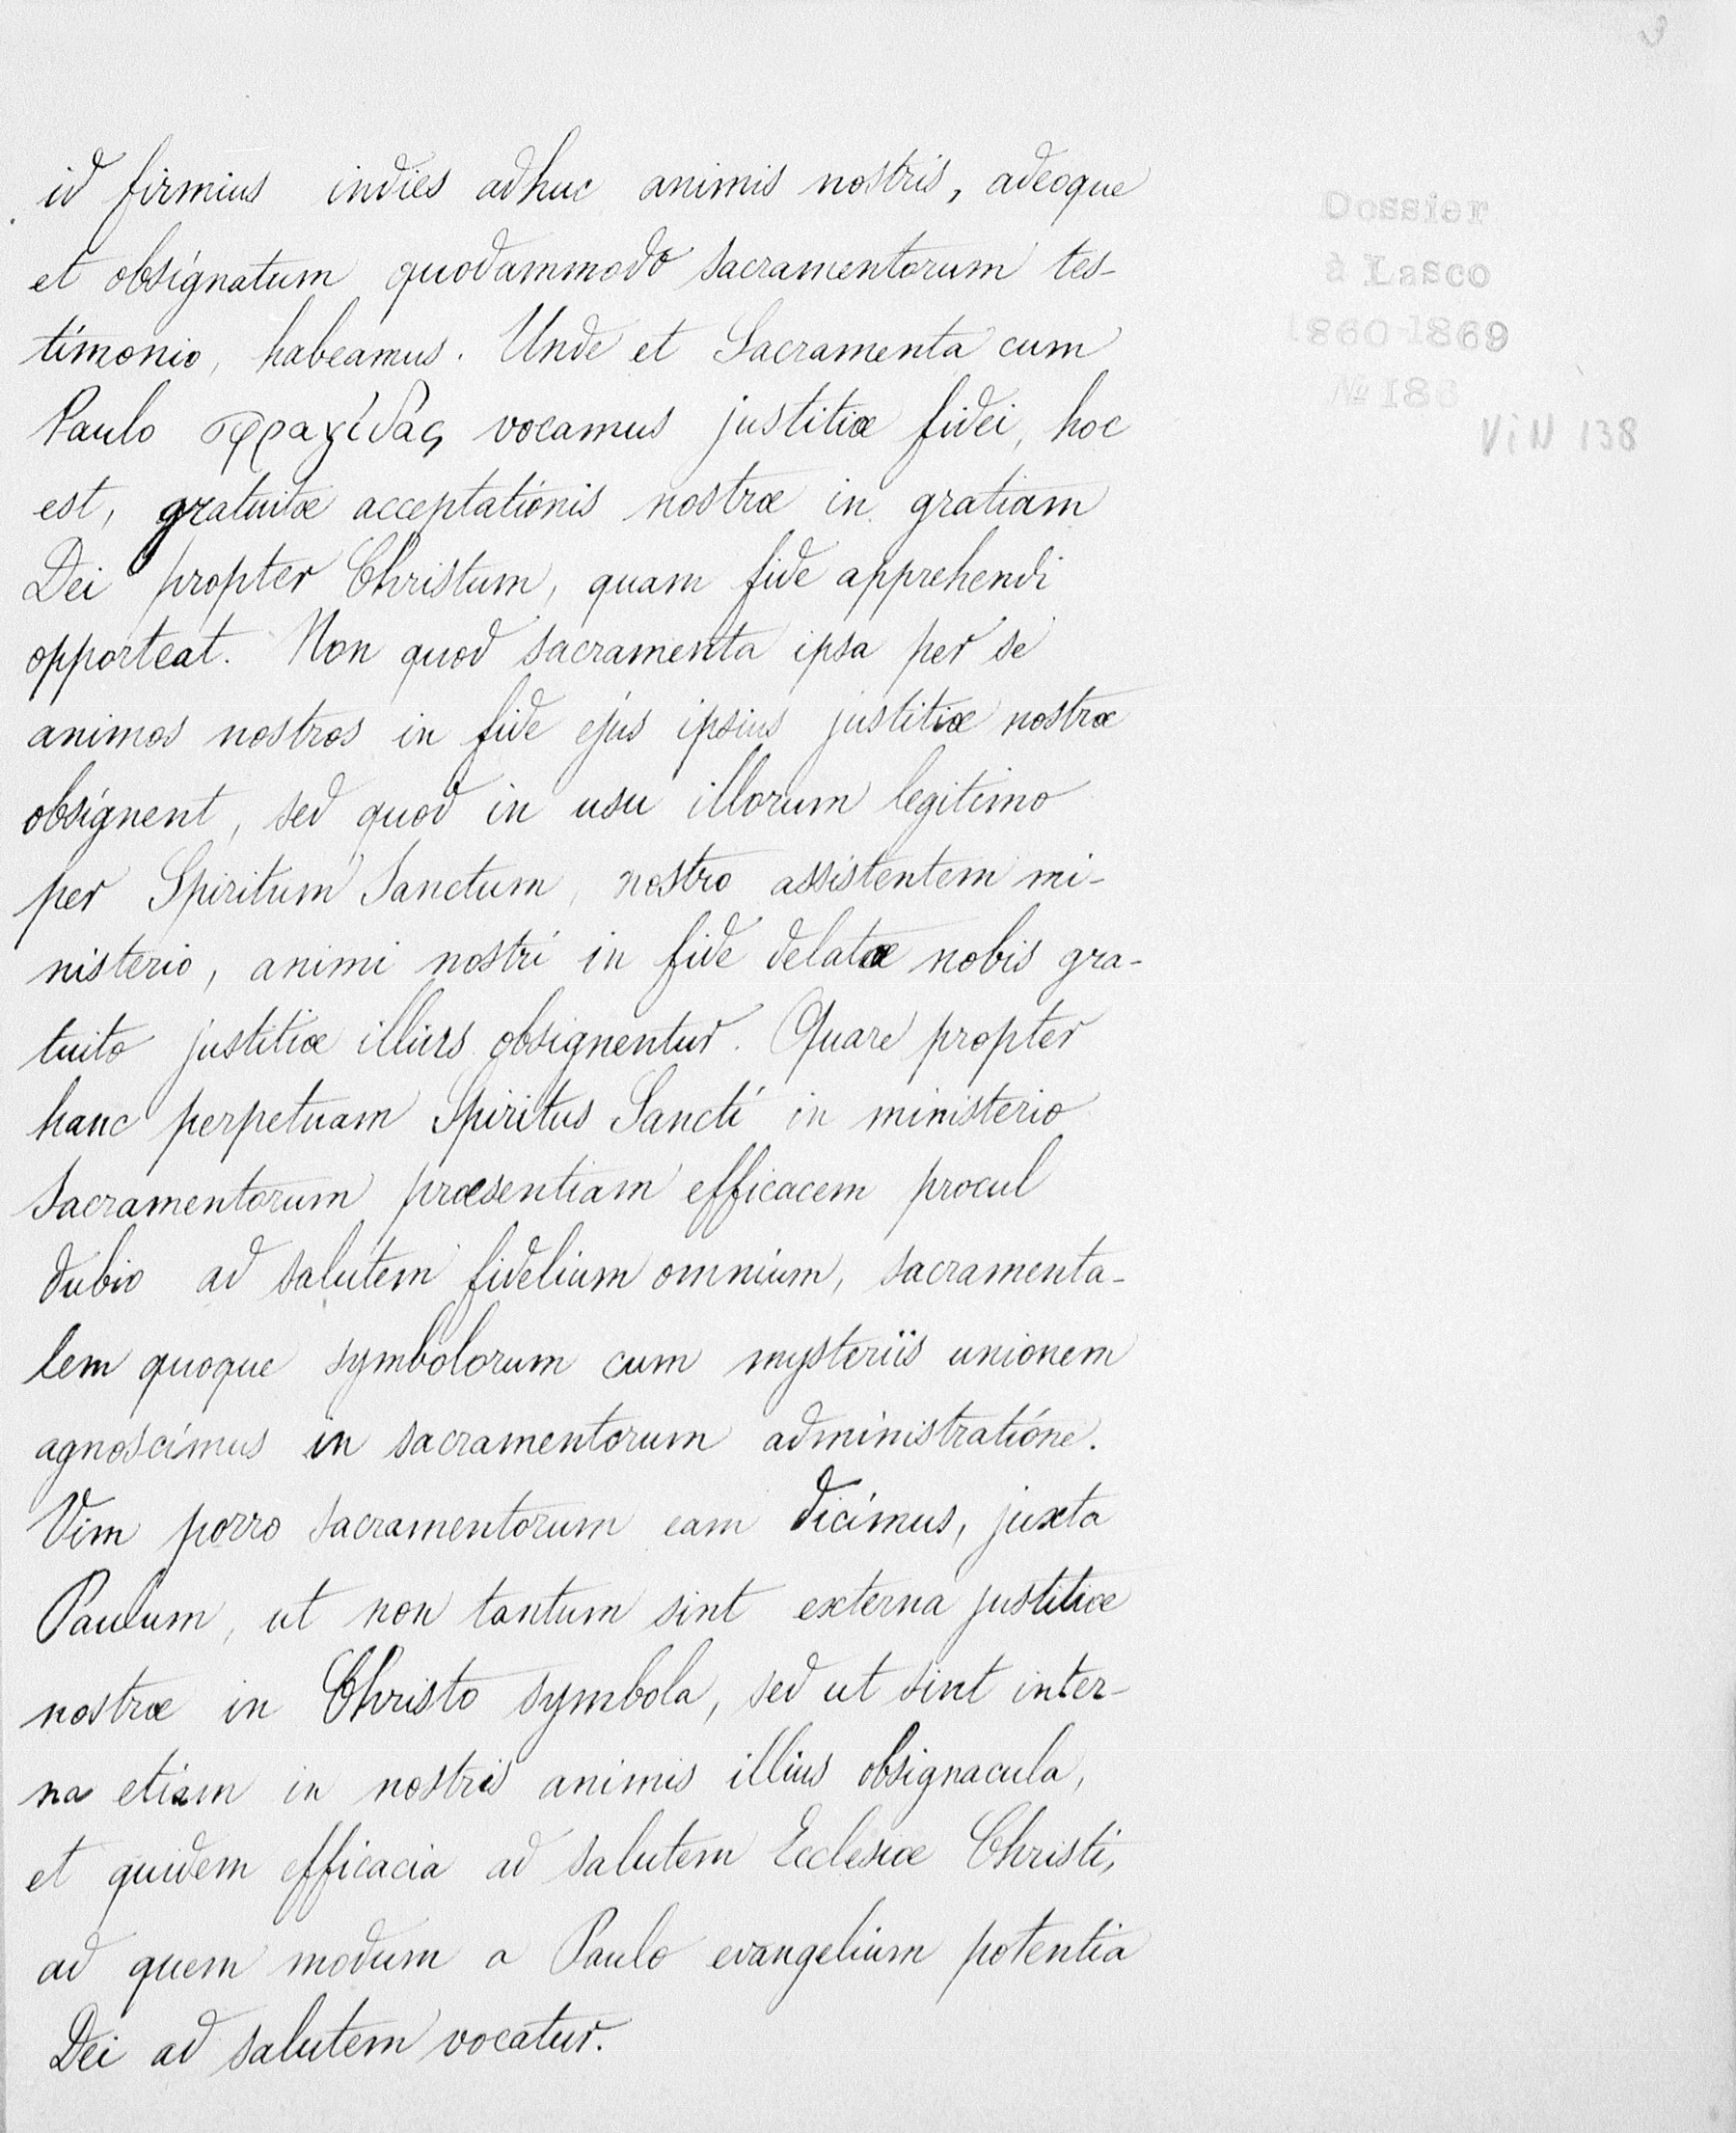 id firmius indies adhuc animis nostris, adeoque
et obsignatum quodammodo sacramentorum tes-
timonio, habeamus. Unde et Sacramenta cum
Paulo σφραγίδας vocamus justitiæ fidei, hoc
est, gratuitæ acceptationis nostræ in gratiam
Dei propter Christum, quam fide apprehendi
opporteat. Non quod sacramenta ipsa per se
animos nostros in fide ejus ipsius justitiæ nostræ
obsignent, sed quod in usu illorum legitimo
per Spiritum Sanctum, nostro assistentem mi-
nisterio, animi nostri in fide delatæ nobis gra-
tuito justitiæ illius obsignentur. Quare propter
hanc perpetuam Spiritus Sancti in ministerio
sacramentorum præsentiam efficacem procul
dubio ad salutem fidelium omnium, sacramenta-
lem quoque symbolorum cum mysteriis unionem
agnoscimus in sacramentorum administratione.
Vim porro sacramentorum eam dicimus, juxta
Paulum, ut non tantum sint externa justitiæ
nostræ in Christo symbola, sed ut sint inter-
na etiam in nostris animis illius obsignacula,
et quidem efficacia ad salutem Ecclesiæ Christi,
ad quem modum a Paulo evangelium potentia
Dei ad salutem vocatur.
Dossier
à Lasco
1860-1869
№ 186
ViN 138